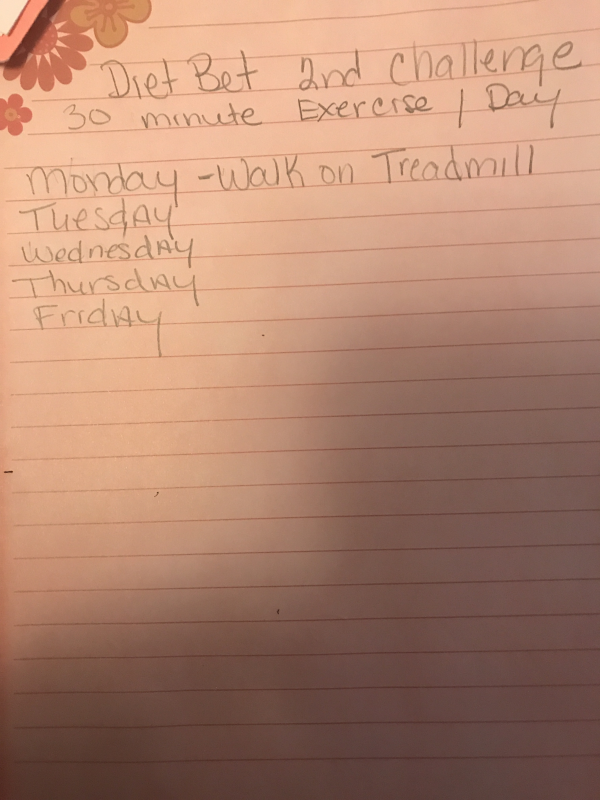 Diet Bet 2nd challenge
30 minute Exercise / Day
Monday - Walk on Treadmill
Tuesday
Wednesday
Thursday
Friday